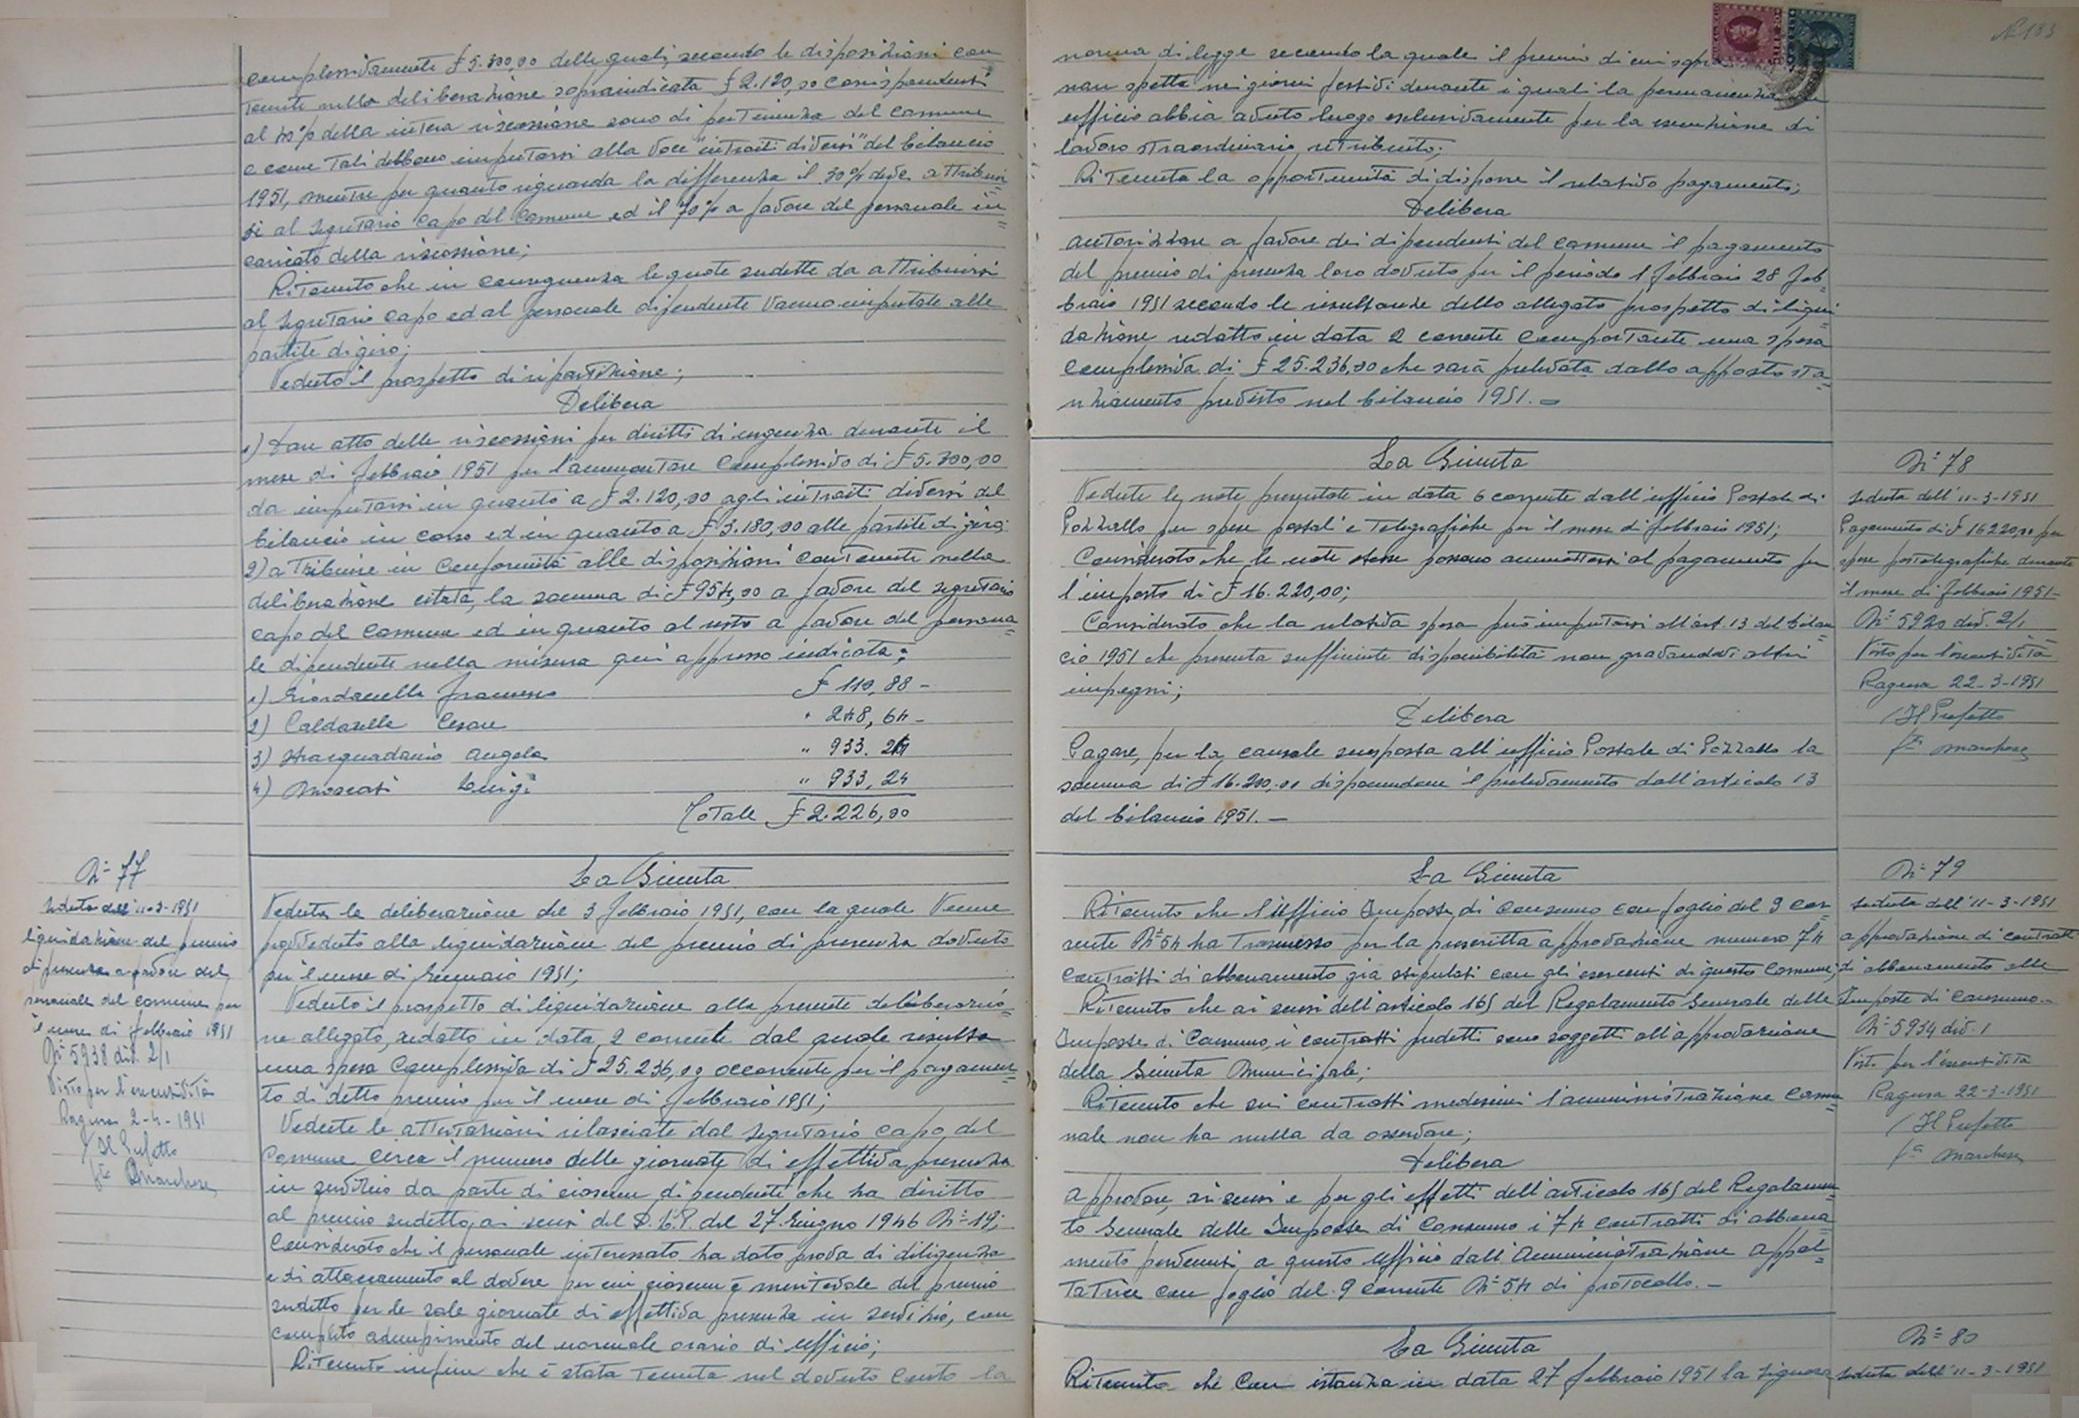 complessivamente £ 5.300,00 delle quali, secondo le disposizioni con
tenute nella deliberazione sopraindicata £ 2.120,00 corrispondenti
al 40% della intera riscossione sono di pertinenza del comune
e come tali debbono imputarsi alla voce "introiti diversi" del bilancio
1951, mentre per quanto riguarda la differenza il 30% deve attribuir
si al Segretario Capo del Comune ed il 70% a favore del personale in=
caricato della riscossione;
Ritenuto che in conseguenza le quote sudette da attribuirsi
al Segretario Capo ed al personale dipendente vanno imputate alle
partite di giro;
Veduto il prospetto di ripartizione;
Delibera
1) Dare atto delle riscossioni per diritti di urgenza durante il
mese di febbraio 1951 per l'ammontare complessivo di £ 5.300,00
da imputarsi in quanto a £ 2.120,00 agli introiti diversi del
bilancio in corso ed in quanto a £ 3.180,00 alle partite di giro;
2) attribuire in conformità alle disposizioni contenute nella
deliberazione citata, la somma di £ 954,00 a favore del segretario
capo del Comune ed in quanto al resto a favore del persona=
le dipendente nella misura qui appresso indicata:
1) Giordanella Francesco £ 110,88 -
2) Caldarella Cesare " 248,64 -
3) Stracquadanio Angelo " 933.24
4) Moscati Luigi " 933,24
Totale £ 2.226,00
N= 77
seduta dell'11-3-1951
liquidazione del premio
di presenza a favore del
personale del comune per
il mese di febbraio 1951
N= 5938 div. 2/1
Visto per l'esecutività
Ragusa 2-4-1951
Il Prefetto
fto Marchese
La Giunta
Veduta la deliberazione del 3 febbraio 1951, con la quale venne
provveduto alla liquidazione del premio di presenza dovuto
per il mese di Gennaio 1951;
Veduto il prospetto di liquidazione alla presente deliberazio=
ne allegato, redatto in data 2 corrente dal quale risulta
una spesa complessiva di £ 25.236,00 occorrente per il pagamen=
to di detto premio per il mese di febbraio 1951;
Vedute le attestazioni rilasciate dal Segretario capo del
Comune circa il numero delle giornate di effettiva presenza
in servizio da parte di ciascun dipendente che ha diritto
al premio sudetto, ai sensi del D.C.P. del 27 Giugno 1946 N= 19;
Considerato che il personale interessato ha dato prova di diligenza
e di attaccamento al dovere per cui ciascun è meritevole del premio
sudetto per le sole giornate di effettiva presenza in servizio, con
completo adempimento del normale orario di ufficio;
Ritenuto infine che è stata tenuta nel dovuto conto la
N 133
norma di legge secondo la quale il premio di cui sopra
non spetta nei giorni festivi durante i quali la permanenza in
ufficio abbia avuto luogo esclusivamente per la esecuzione di
lavoro straordinario retribuito;
Ritenuta la opportunità di disporre il relativo pagamento;
Delibera
autorizzare a favore dei dipendenti del comune il pagamento
del premio di presenza loro dovuto per il periodo 1 febbraio 28 feb=
braio 1951 secondo le risultanze dello allegato prospetto di liqui=
dazione redatto in data 2 corrente comportante una spesa
complessiva di £ 25.236,00 che sarà prelevata dallo apposito sta=
nziamento previsto nel bilancio 1951. =
La Giunta
Vedute le note presentate in data 6 corrente dall'ufficio Postale di
Pozzallo per spese postali e telegrafiche per il mese di febbraio 1951;
Considerato che le note stesse possono ammettersi al pagamento per
l'importo di £ 16.220,00;
Considerato che la relativa spesa può imputarsi all'art. 13 del bilan
cio 1951 che presenta sufficiente disponibilità non gravandovi altri
impegni;
Delibera
Pagare, per la causale suesposta all'ufficio Postale di Pozzallo la
somma di £ 16.220,00 disponendone il prelevamento dall'articolo 13
del bilancio 1951. -
N= 78
seduta dell'11-3-1951
Pagamento di £ 16220,00 per
spese postelegrafiche durante
il mese di febbraio 1951-
N= 5920 div. 2/1
Visto per l'esecutività
Ragusa 22-3-1951
Il Prefetto
fto Marchese
La Giunta
Ritenuto che l'Ufficio Imposte di Consumo con foglio del 9 cor=
rente N= 54 ha trasmesso per la prescritta approvazione numero 74
contratti di abbonamento già stipulati con gli esercenti di questo Comune;
Ritenuto che ai sensi dell'articolo 165 del Regolamento Generale delle
Imposte di Consumo, i contratti predetti sono soggetti all'approvazione
della Giunta Municipale;
Ritenuto che sui contratti medesimi l'amministrazione Comu
nale non ha nulla da osservare;
Delibera
approvare, ai sensi e per gli effetti dell'articolo 165 del Regolamen=
to Generale delle Imposte di Consumo i 74 contratti di abbona=
mento pervenuti a questo Ufficio dall'Amministrazione appal=
tatrice con foglio del 9 corrente N= 54 di protocollo. -
N= 79
seduta dell'11-3-1951
approvazione di contratti
di abbonamento alle
Imposte di Consumo-
N= 5934 div. 1
Visto per l'esecutività
Ragusa 22-3-1951
Il Prefetto
fto Marchese
La Giunta
Ritenuto che con istanza in data 27 febbraio 1951 la signora
N= 80
seduta dell'11-3-1951